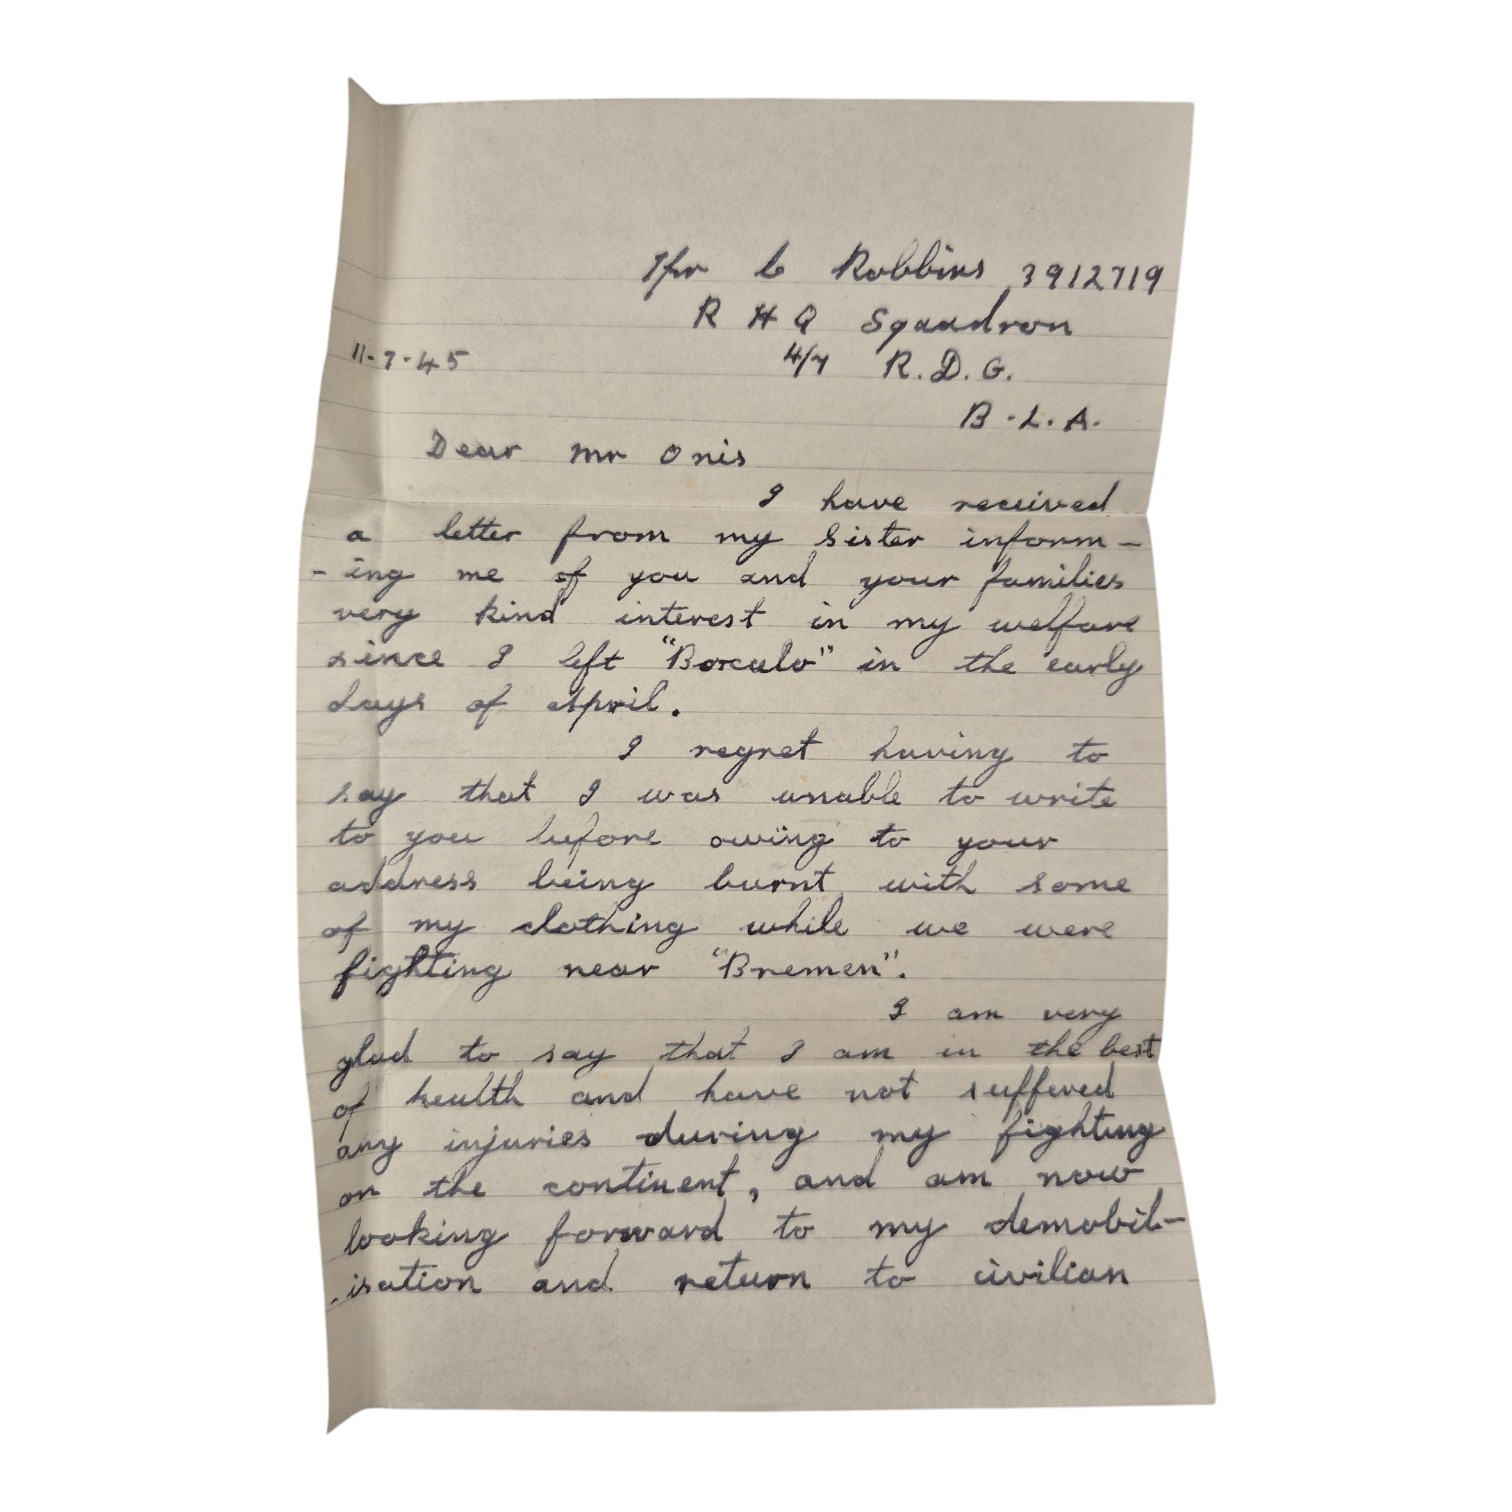 Tpr C Robbins 3912719
R H Q Squadron
11-7-45 4/7 R.D.G.
B.L.A.
Dear Mr Onis
I have received
a letter from my sister inform-
-ing me of you and your families
very kind interest in my welfare
since I left "Borculo" in the early
days of April.
I regret having to
say that I was unable to write
to you before owing to your
address being burnt with some
of my clothing while we were
fighting near "Bremen".
I am very
glad to say that I am in the best
of health and have not suffered
any injuries during my fighting
on the continent, and am now
looking forward to my demobil-
-isation and return to civilian